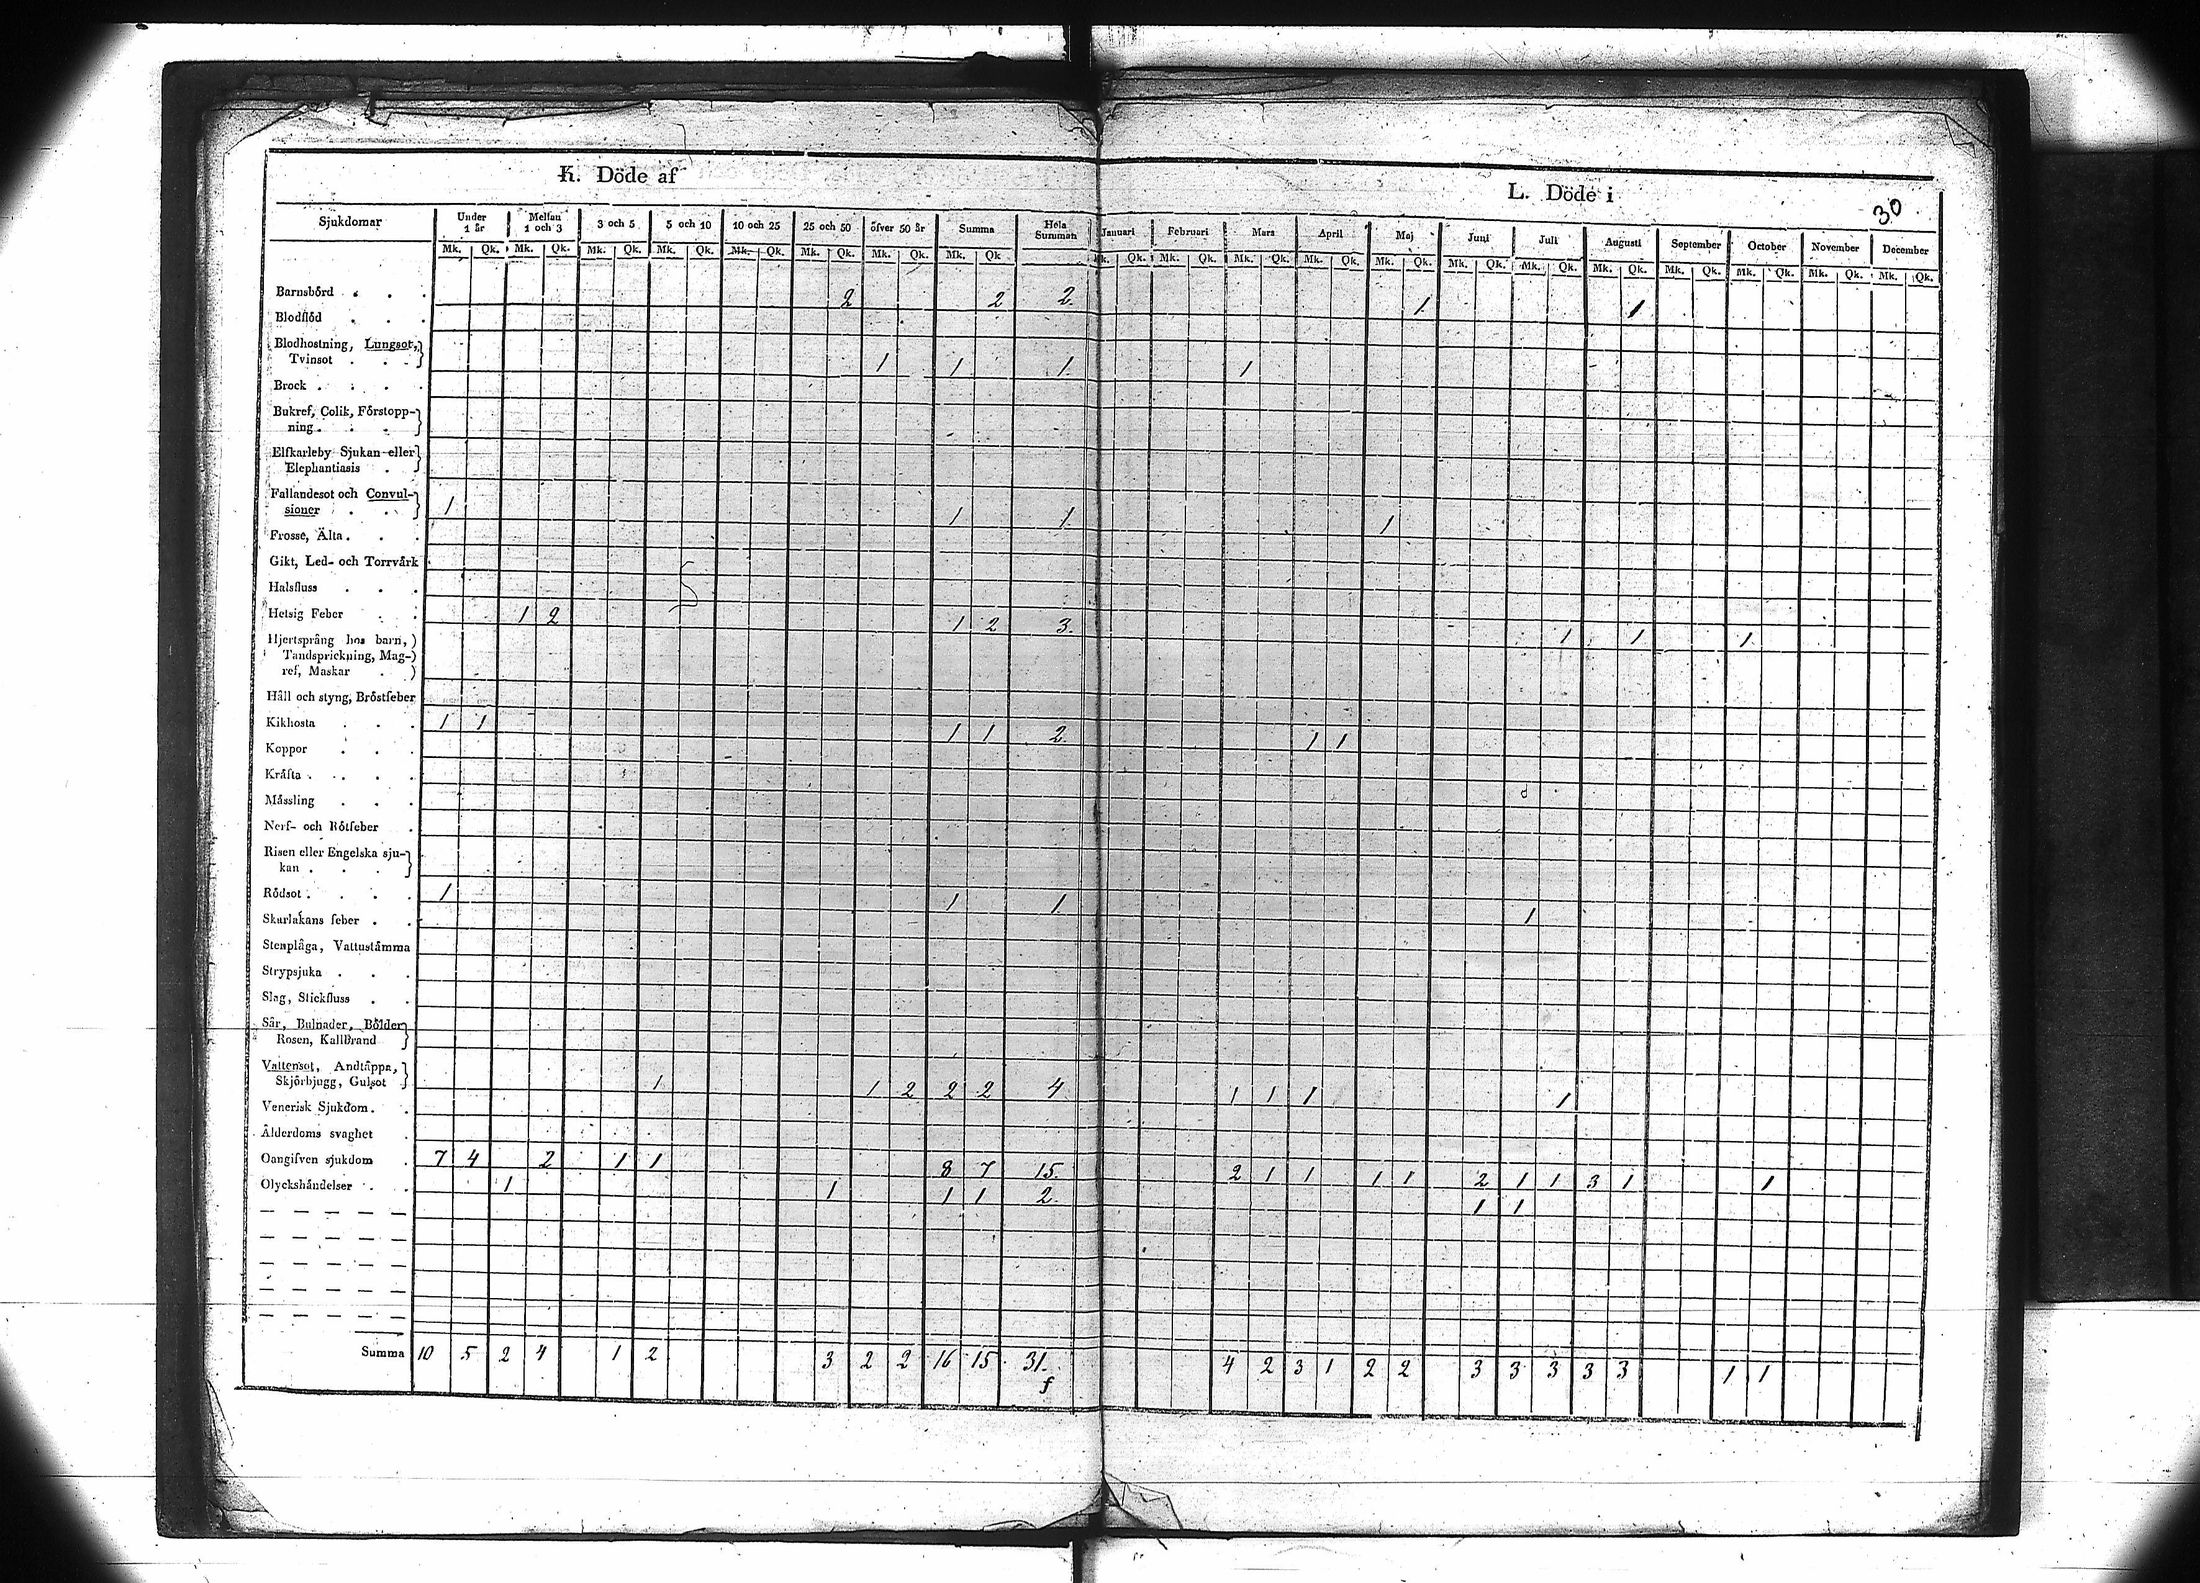 K. Döde af
L. Döde i
30
Sjukdomar Under 1 år Mellan 1 och 3 3 och 5 5 och 10 10 och 25 25 och 50 öfver 50 år Summa Hela Summan Januari Februari Mars April Maj Juni Juli Augusti September October November December
Mk. Qk. Mk. Qk. Mk. Qk. Mk. Qk. Mk. Qk. Mk. Qk. Mk. Qk. Mk. Qk Mk. Qk. Mk. Qk. Mk. Qk. Mk. Qk. Mk. Qk. Mk. Qk. Mk. Qk. Mk. Qk. Mk. Qk. Mk. Qk. Mk. Qk. Mk. Qk.
Barnsbörd . . . 2 2 2 1 1
Blodflöd . . .
Blodhostning, Lungsot,
Tvinsot . . . 1 1 1 1
Brock . . . .
Bukref, Colik, Förstopp-
ning . . .
Elfkarleby Sjukan eller
Elephantiasis .
Fallandesot och Convul-
sioner . . . 1 1 1 1
Frossa, Älta . . .
Gikt, Led- och Torrvärk
Halsfluss . . .
Hetsig Feber . . 1 2 1 2 3. 1 1 1
Hjertsprång hos barn,
Tandsprickning, Mag-
ref, Maskar .
Håll och styng, Bröstfeber
Kikhosta . . . 1 1 1 1 2 1 1
Koppor . . .
Kräfta . . . .
Mässling . . .
Nerf- och Rötfeber .
Risen eller Engelska sju-
kan . . .
Rödsot . . . . 1 1 1 1
Skarlakans feber . .
Stenplåga, Vattustämma
Strypsjuka . . .
Slag, Stickfluss . .
Sår, Bulnader, Bölder
Rosen, Kallbrand
Vattensot, Andtäppa,
Skjörbjugg, Gulsot 1 1 2 2 2 4 1 1 1 1
Venerisk Sjukdom . .
Ålderdoms svaghet .
Oangifven sjukdom . 7 4 2 1 1 8 7 15. 2 1 1 1 1 2 1 1 3 1 1
Olyckshändelser . . 1 1 1 1 2 1 1
Summa 10 5 2 4 1 2 3 2 2 16 15 31. 4 2 3 1 2 2 3 3 3 3 3 1 1